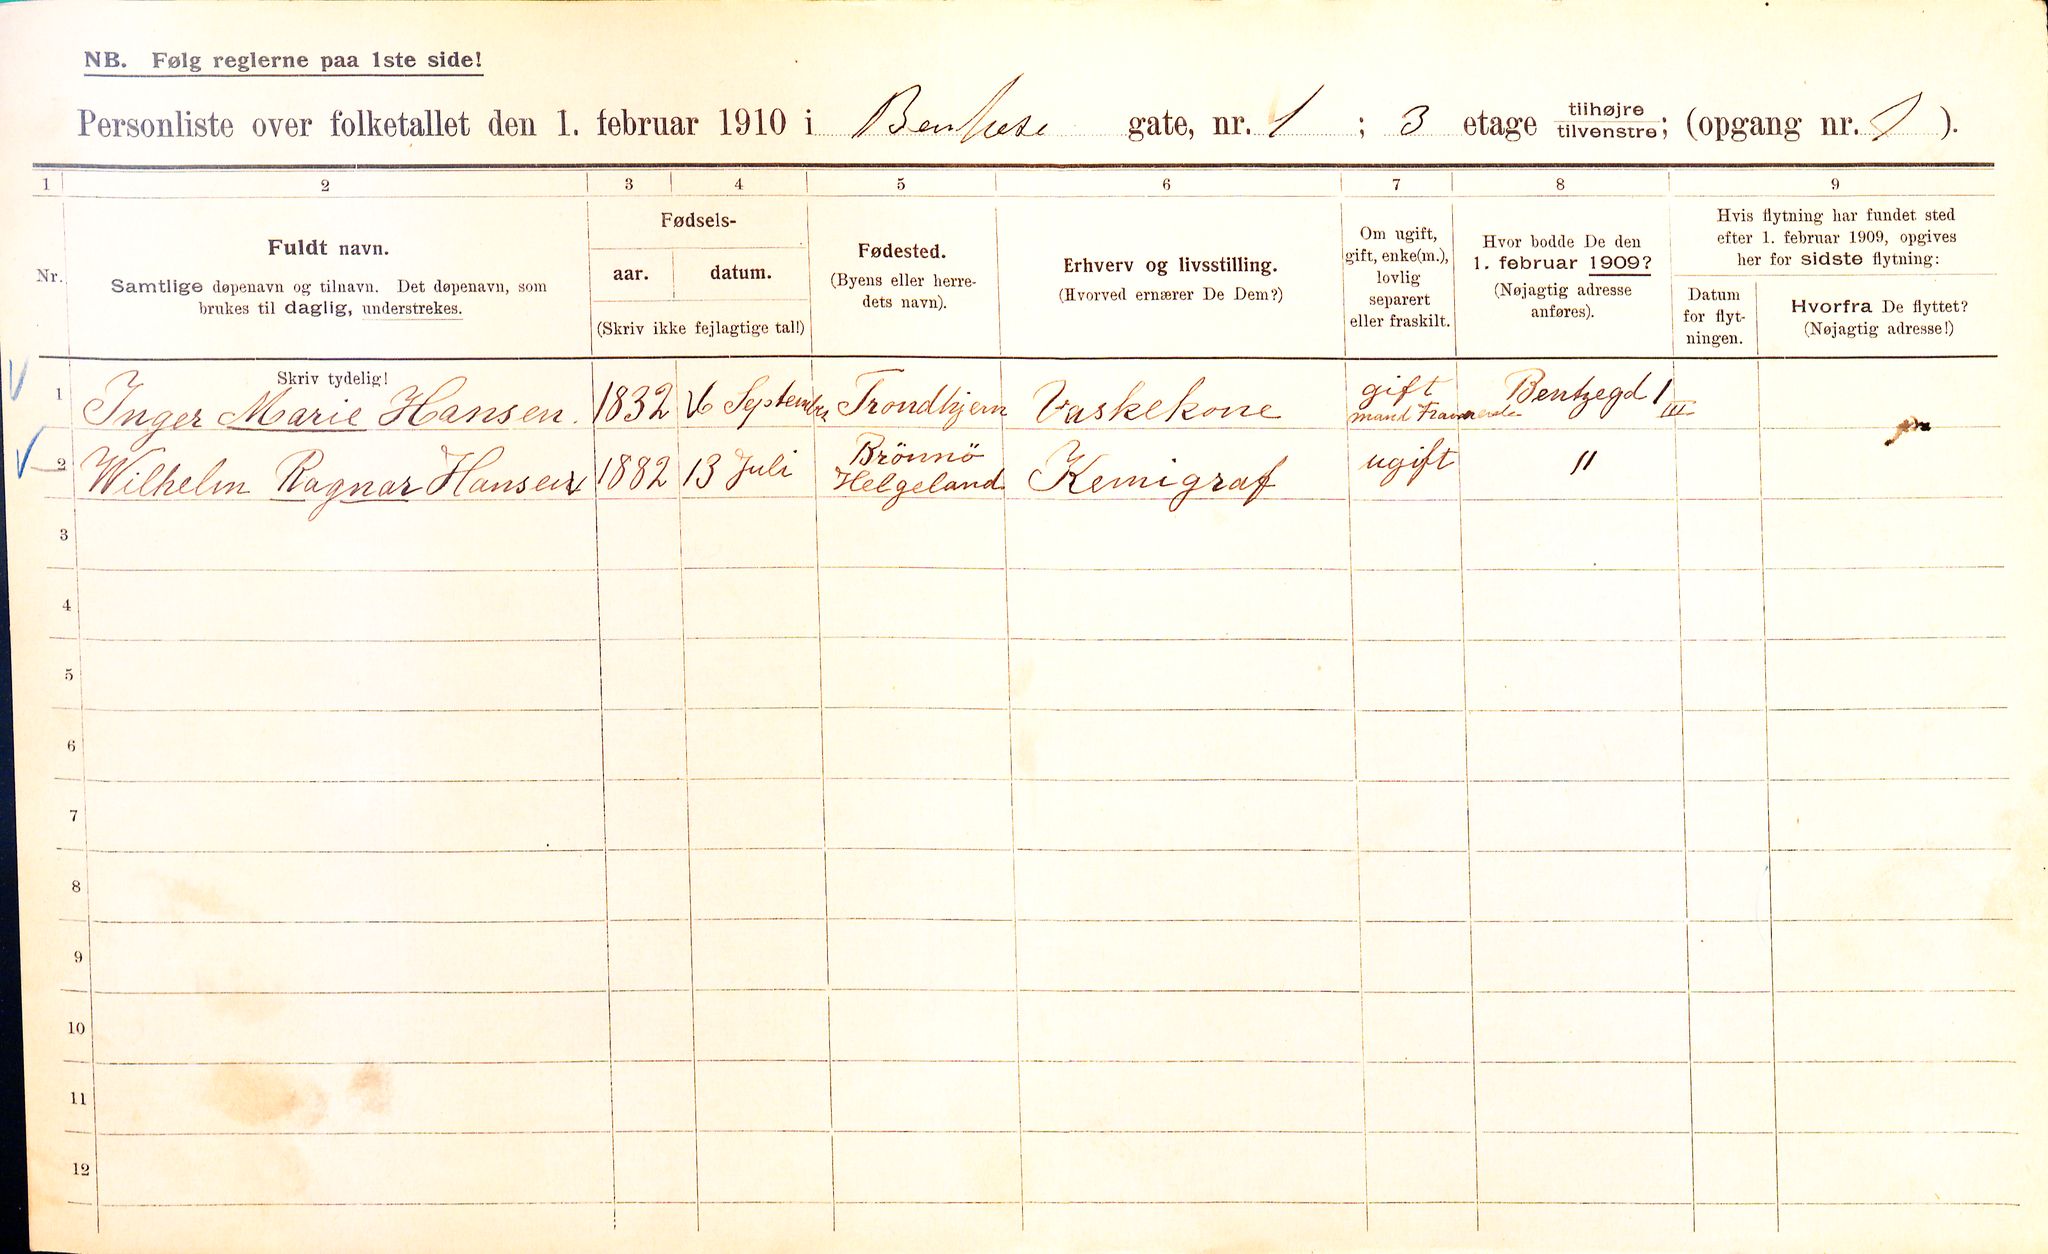 NB. Følg reglerne paa 1ste side!
Personliste over folketallet den 1. februar 1910 i Bentsese gate, nr. 1 ; 3 etage tilhøjre / tilvenstre; (opgang nr. 1 ).
1 2 3 4 5 6 7 8 9
Nr.
Fuldt navn.
Samtlige døpenavn og tilnavn. Det døpenavn, som
brukes til daglig, understrekes.
Fødsels-
aar. datum.
(Skriv ikke fejlagtige tal!)
Fødested.
(Byens eller herre-
dets navn).
Erhverv og livsstilling.
(Hvorved ernærer De Dem?)
Om ugift,
gift, enke(m.),
lovlig
separert
eller fraskilt.
Hvor bodde De den
1. februar 1909?
(Nøjagtig adresse
anføres).
Hvis flytning har fundet sted
efter 1. februar 1909, opgives
her for sidste flytning:
Datum
for flyt-
ningen.
Hvorfra De flyttet?
(Nøjagtig adresse!)
Skriv tydelig!
1 Inger Marie Hansen. 1832 6 September Trondhjem Vaskekone gift Bentzegd 1
mand III
2 Wilhelm Ragnar Hansen 1882 13 Juli Brönnö Helgeland Kemigraf ugift "
3
4
5
6
7
8
9
10
11
12